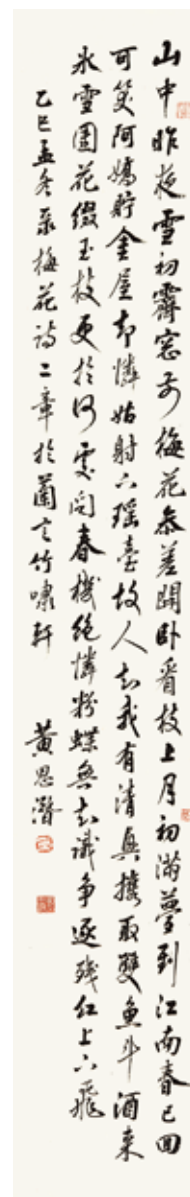 山中昨夜雪初霽窓前梅花參差開卧看枝上月初滿夢到江南春已回
可笑阿嬌貯金屋却憐姑射下瑶臺故人知我有清興攜取雙魚斗酒来
氷雪園花綴玉枝更於何處问春機絶憐粉蝶無知識争逐残红上下飛
乙巳孟冬录梅花诗二章於蘭言竹嘯軒
黄思潛